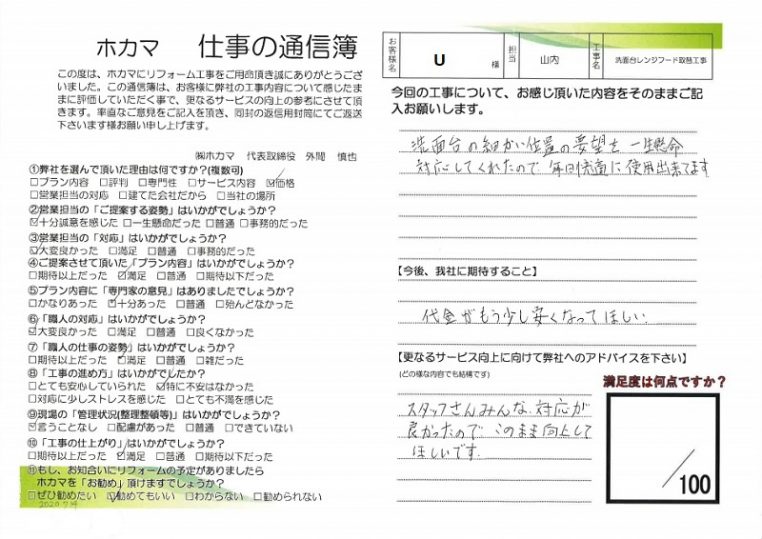 ホカマ 仕事の通信簿
この度は、ホカマにリフォーム工事をご用命頂き誠にありがとうござ
いました。この通信簿は、お客様に弊社の工事内容について感じたま
まに評価していただく事で、更なるサービスの向上の参考にさせて頂
きます。率直なご意見をご記入を頂き、同封の返信用封筒にてご返送
下さいます様お願い申し上げます。
㈱ホカマ 代表取締役 外間 慎也
①弊社を選んで頂いた理由は何ですか?(複数可)
□プラン内容 □評判 □専門性 □サービス内容 ☑価格
□営業担当の対応 □建てた会社だから □当社の場所
②営業担当の「ご提案する姿勢」はいかがでしょうか?
☑十分誠意を感じた □一生懸命だった □普通 □事務的だった
③営業担当の「対応」はいかがでしょうか?
☑大変良かった □満足 □普通 □事務的だった
④ご提案させて頂いた「プラン内容」はいかがでしょうか?
□期待以上だった ☑満足 □普通 □期待以下だった
⑤プラン内容に「専門家の意見」はありましたでしょうか?
□かなりあった ☑十分あった □普通 □殆んどなかった
⑥「職人の対応」はいかがでしょうか?
☑大変良かった □満足 □普通 □良くなかった
⑦「職人の仕事の姿勢」はいかがでしょうか?
□期待以上だった ☑満足 □普通 □雑だった
⑧「工事の進め方」はいかがでしたか?
□とても安心していられた ☑特に不安はなかった
□対応に少しストレスを感じた □とても不満を感じた
⑨現場の「管理状況(整理整頓等)」はいかがでしょうか?
☑言うことなし □配慮があった □普通 □できていない
⑩「工事の仕上がり」はいかがでしょうか?
□期待以上だった ☑満足 □普通 □期待以下だった
⑪もし、お知合いにリフォームの予定がありましたら
ホカマを「お勧め」頂けますでしょうか?
□ぜひ勧めたい ☑勧めてもいい □わからない □勧められない
お客様名 U 様 担当 山内 工事名 洗面台レンジフード取替工事
今回の工事について、お感じ頂いた内容をそのままご記
入お願いします。
洗面台の細かい位置の要望を一生懸命
対応してくれたので毎日快適に使用出来てます
【今後、我社に期待すること】
代金がもう少し安くなってほしい.
【更なるサービス向上に向けて弊社へのアドバイスを下さい】
(どの様な内容でも結構です)
スタッフさんみんな、対応が
良かったので このまま向上して
ほしいです.
満足度は何点ですか?
/100